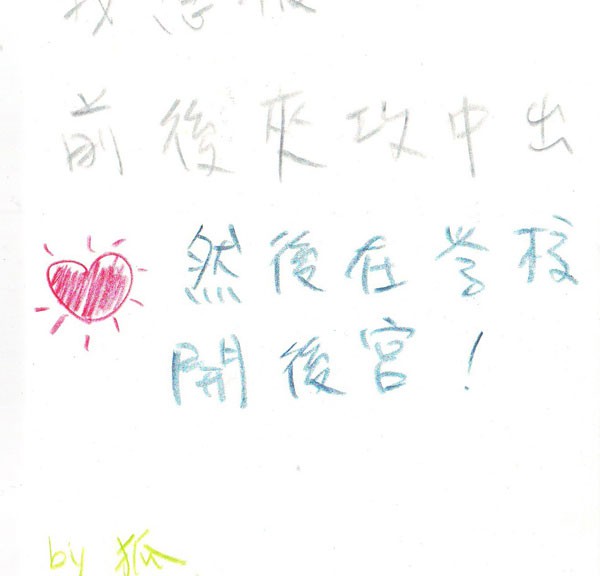 前後夾攻中出
然後在学校
開後宮！
by 狐